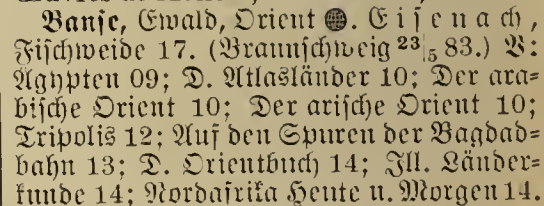 Banse, Ewald, Orient 🌐. Eisenach,
Fischweide 17. (Braunschweig 23|5 83.) B:
Ägypten 09; D. Atlasländer 10; Der ara-
bische Orient 10; Der arische Orient 10;
Tripolis 12; Auf den Spuren der Bagdad-
bahn 13; D. Orientbuch 14; Ill. Länder-
kunde 14; Nordafrika Heute u. Morgen 14.